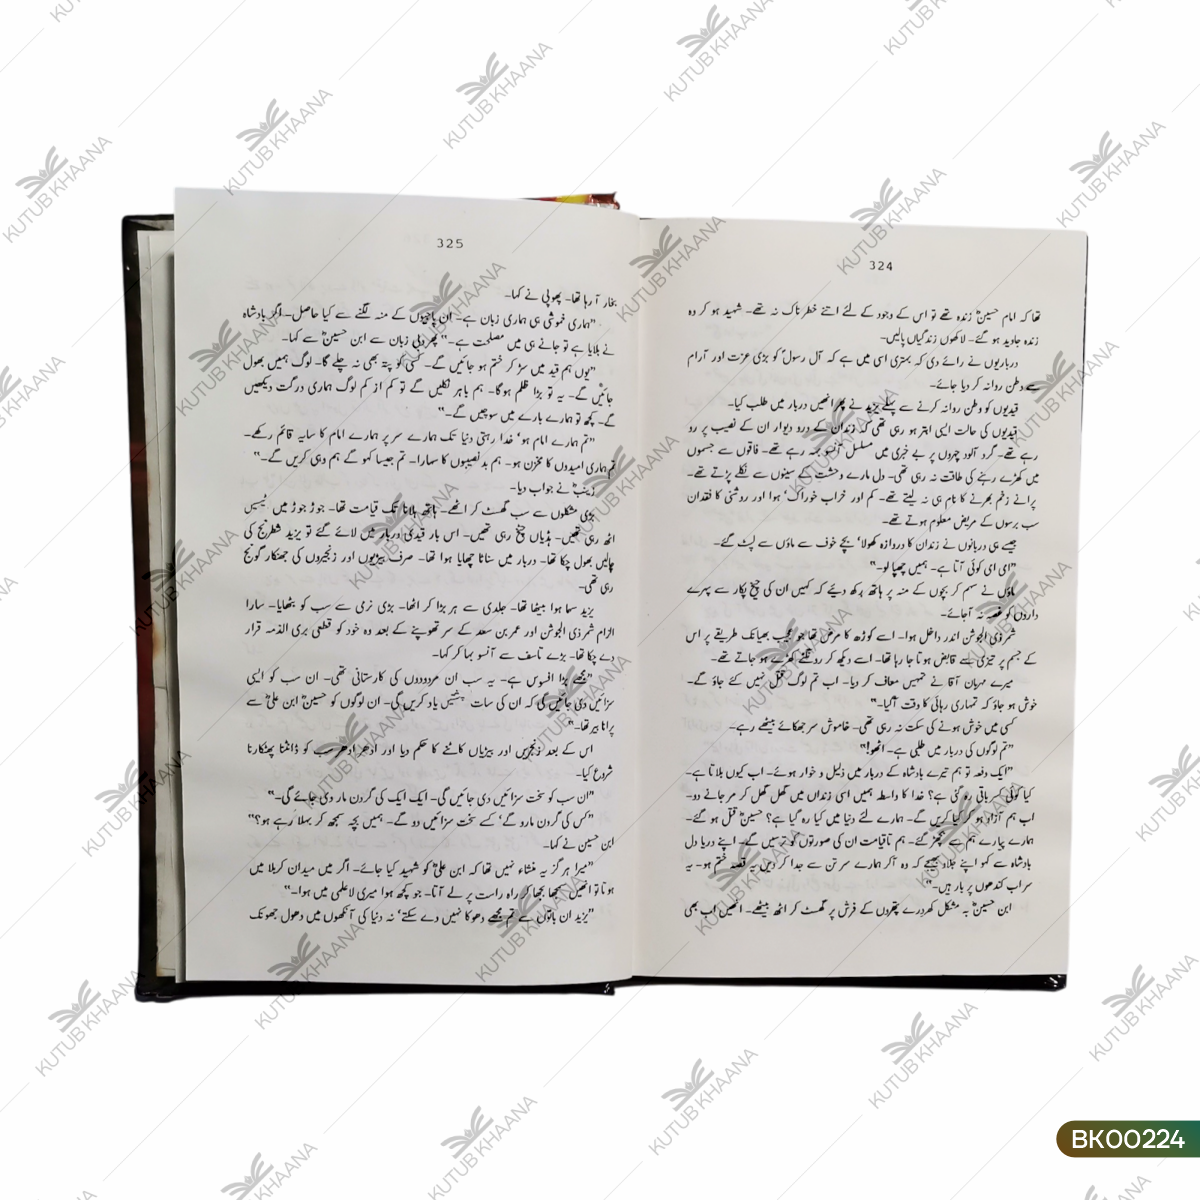 324
تھا کہ امام حسینؑ زندہ تھے تو اس کے وجود کے لئے اتنے خطرناک نہ تھے۔ شہید ہو کر وہ
زندہ جاوید ہو گئے۔ لاکھوں زندگیاں پالیں۔
درباریوں نے رائے دی کہ بہتری اسی میں ہے کہ آل رسولؐ کو بڑی عزت اور آرام
سے وطن روانہ کر دیا جائے۔
قیدیوں کو وطن روانہ کرنے سے پہلے یزید نے پھر انھیں دربار میں طلب کیا۔
قیدیوں کی حالت ایسی ابتر ہو رہی تھی کہ زندان کے درو دیوار ان کے نصیب پر رو
رہے تھے۔ گرد آلود چہروں پر بے خبری میں مسلسل آنسو بہہ رہے تھے۔ فاقوں سے جسموں
میں کھڑے رہنے کی طاقت نہ رہی تھی۔ دل مارے دہشت کے سینوں سے نکلے پڑتے تھے۔
پرانے زخم بھرنے کا نام ہی نہ لیتے تھے۔ کم اور خراب خوراک' ہوا اور روشنی کا فقدان
سب برسوں کے مریض معلوم ہوتے تھے۔
جیسے ہی دربانوں نے زندان کا دروازہ کھولا' بچے خوف سے ماؤں سے لپٹ گئے۔
"امی امی کوئی آتا ہے۔ ہمیں چھپا لو۔"
ماؤں نے سہم کر بچوں کے منہ پر ہاتھ رکھ دیئے کہ کہیں ان کی چیخ پکار سے پہرے
داروں کو غصہ نہ آجائے۔
شمر ذی الجوشن اندر داخل ہوا۔ اسے کوڑھ کا مرض تھا جو عجیب بھیانک طریقے پر اس
کے جسم پر تیزی سے قابض ہوتا جا رہا تھا۔ اسے دیکھ کر رونگٹے کھڑے ہو جاتے تھے۔
میرے مہربان آقا نے تمہیں معاف کر دیا۔ اب تم لوگ قتل نہیں کئے جاؤ گے۔
خوش ہو جاؤ کہ تمہاری رہائی کا وقت آگیا۔"
کسی میں خوش ہونے کی سکت نہ رہی تھی۔ خاموش سر جھکائے بیٹھے رہے۔
"تم لوگوں کی دربار میں طلبی ہے۔ اٹھو!"
"ایک دفعہ تو ہم تیرے بادشاہ کے دربار میں ذلیل و خوار ہوئے۔ اب کیوں بلاتا ہے۔
کیا کوئی کسر باقی رہ گئی ہے؟ خدا کا واسطہ ہمیں اسی زنداں میں گھل گھل کر مر جانے دو۔
اب ہم آزاد ہو کر کیا کریں گے۔ ہمارے لئے دنیا میں کیا رہ گیا ہے؟ حسینؑ قتل ہو گئے۔
ہمارے پیارے ہم سے بچھڑ گئے۔ ہم تاقیامت ان کی صورتوں کو ترسیں گے۔ اپنے دریا دل
بادشاہ سے کہو اپنے جلاد بھیجے کہ وہ آکر ہمارے سر تن سے جدا کر دیں یہ قصہ ختم ہو۔ یہ
سر اب کندھوں پر بار ہیں۔"
ابن حسینؑ بہ مشکل کھردرے پتھروں کے فرش پر گھسٹ کر اٹھ بیٹھے۔ انھیں اب بھی
325
بخار آ رہا تھا۔ پھوپی نے کہا۔
"ہماری خموشی ہی ہماری زبان ہے۔ ان پاپیوں کے منہ لگنے سے کیا حاصل۔ اگر بادشاہ
نے بلایا ہے تو جانے ہی میں مصلحت ہے۔" پھر دبی زبان سے ابن حسینؑ سے کہا۔
"یوں ہم قید میں سڑ کر ختم ہو جائیں گے۔ کسی کو پتہ بھی نہ چلے گا۔ لوگ ہمیں بھول
جائیں گے۔ یہ تو بڑا ظلم ہوگا۔ ہم باہر نکلیں گے تو کم از کم لوگ ہماری درگت دیکھیں
گے۔ کچھ تو ہمارے بارے میں سوچیں گے۔"
"تم ہمارے امام ہو' خدا رہتی دنیا تک ہمارے سر پر ہمارے امام کا سایہ قائم رکھے۔
تم ہماری امیدوں کا مخزن ہو۔ ہم بدنصیبوں کا سہارا۔ تم جیسا کہو گے ہم وہی کریں گے۔"
زینبؑ نے جواب دیا۔
بڑی مشکلوں سے سب گھسٹ کر اٹھے۔ ہاتھ ہلانا تک قیامت تھا۔ جوڑ جوڑ میں ٹیسیں
اٹھ رہی تھیں۔ ہڈیاں چیخ رہی تھیں۔ اس بار قیدی دربار میں لائے گئے تو یزید شطرنج کی
چالیں بھول چکا تھا۔ دربار میں سناٹا چھایا ہوا تھا۔ صرف بیڑیوں اور زنجیروں کی جھنکار گونج
رہی تھی۔
یزید سہما ہوا بیٹھا تھا۔ جلدی سے ہڑبڑا کر اٹھا۔ بڑی نرمی سے سب کو بٹھایا۔ سارا
الزام شمر ذی الجوشن اور عمر بن سعد کے سر تھوپنے کے بعد وہ خود کو قطعی بری الذمہ قرار
دے چکا تھا۔ بڑے تاسف سے آنسو بہا کر کہا۔
"مجھے بڑا افسوس ہے۔ یہ سب ان مردودوں کی کارستانی تھی۔ ان سب کو ایسی
سزائیں دی جائیں گی کہ ان کی سات پشتیں یاد کریں گی۔ ان لوگوں کو حسینؑ ابن علیؑ سے
پرانا بیر تھا۔"
اس کے بعد زنجیریں اور بیڑیاں کاٹنے کا حکم دیا اور ادھر ادھر سب کو ڈانٹنا پھٹکارنا
شروع کیا۔
"ان سب کو سخت سزائیں دی جائیں گی۔ ایک ایک کی گردن مار دی جائے گی۔"
"کس کی گردن مارو گے' کسے سخت سزائیں دو گے۔ ہمیں بچہ سمجھ کر بہلا رہے ہو؟"
ابن حسین نے کہا۔
"میرا ہرگز یہ منشاء نہیں تھا کہ ابن علیؑ کو شہید کیا جائے۔ اگر میں میدان کربلا میں
ہوتا تو انھیں سمجھا بجھا کر راہ راست پر لے آتا۔ جو کچھ ہوا میری لاعلمی میں ہوا۔"
"یزید ان باتوں سے تم مجھے دھوکا نہیں دے سکتے' نہ دنیا کی آنکھوں میں دھول جھونک
KUTUB KHAANA
BK00224